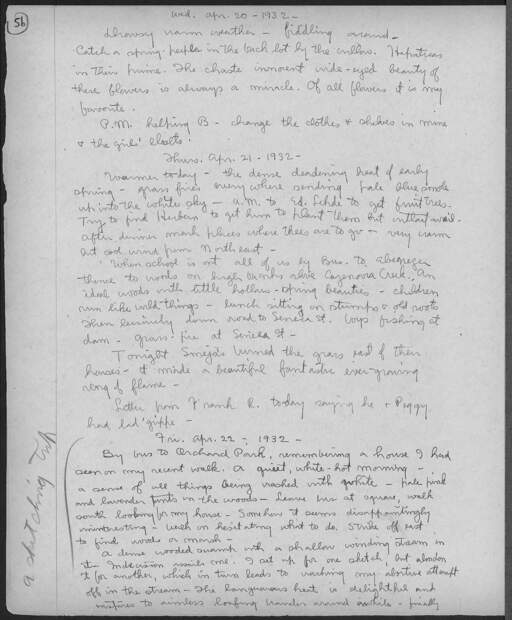 56
Wed. Apr. 20 - 1932 -
Drowsy warm weather - fiddling around -
Catch a spring peeper in the back lot by the willow. Hepaticas
in their prime. The chaste innocent wide-eyed beauty of
these flowers is always a miracle. Of all flowers it is my
favorite.
P.M. helping B - change the clothes & shelves in mine
& the girls' closets.
Thurs. Apr. 21 - 1932 -
Warmer today - the dense deadening heat of early
spring - grass fires everywhere sending pale blue smoke
up into the white sky - a.m. to Ed. to get fruit trees.
Try to find to get him to plant them but without avail.
After dinner mark places where trees are to go - very warm
but cool wind from Northeast -
When school is out all of us by Bus. to Ebenezer
thence to woods on high banks above Cazenovia Creek, An
ideal woods with little hollows - spring beauties - children
run like wild things - lunch sitting on stumps & old roots
Then leisurely down road to Seneca St. boys fishing at
dam - grass-fire at Seneca St -
Tonight burned the grass east of their
houses - it made a beautiful fantastic ever-growing
ring of flame -
Letter from Frank K. today saying he & Peggy
had had grippe -
Fri. Apr. 22 - 1932 -
By bus to Orchard Park, remembering a house I had
seen on my recent walk. A quiet, white-hot morning -
a sense of all things being washed with white - pale pink
and lavender tints in the woods - Leave bus at square, walk
south looking for my house - Somehow it seems disappointingly
uninteresting - walk on hesitating what to do. Strike off east
to find woods or marsh -
A dense wooded swamp with a shallow winding stream in
it - Indecision assails me. I set up for one sketch, but abandon
it for another, which in turn leads to washing my abortive attempt
off in the stream - The languorous heat is delightful and
inspires to aimless loafing wander around awhile - finally
a sketching trip